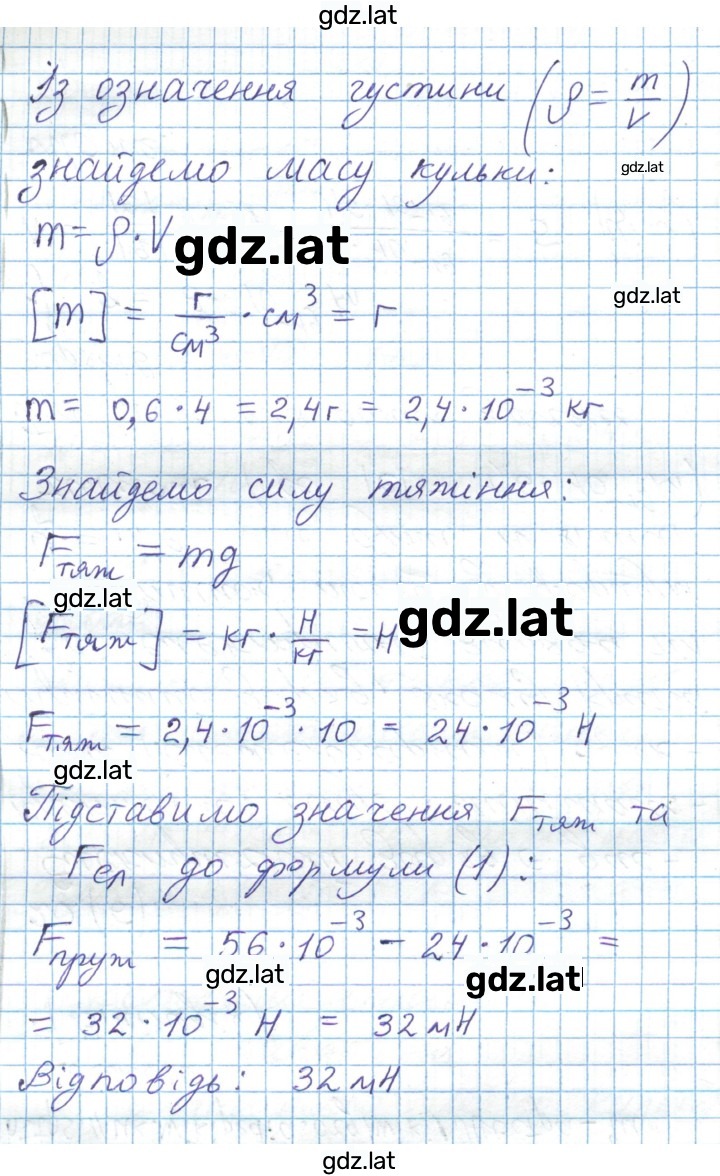 gdz.lat
Із означення густини (ρ = m/V)
gdz.lat
знайдемо масу кульки:
m = ρ · V
gdz.lat
gdz.lat
[m] = г/см³ · см³ = г
m = 0,6 · 4 = 2,4 г = 2,4 · 10⁻³ кг
Знайдемо силу тяжіння:
Fтяж = mg
gdz.lat
gdz.lat
[Fтяж] = кг · Н/кг = Н
Fтяж = 2,4 · 10⁻³ · 10 = 24 · 10⁻³ Н
gdz.lat
Підставимо значення Fтяж та
Fел до формули (1):
Fпруж = 56 · 10⁻³ − 24 · 10⁻³ =
gdz.lat
gdz.lat
= 32 · 10⁻³ Н = 32 мН
Відповідь: 32 мН
gdz.lat